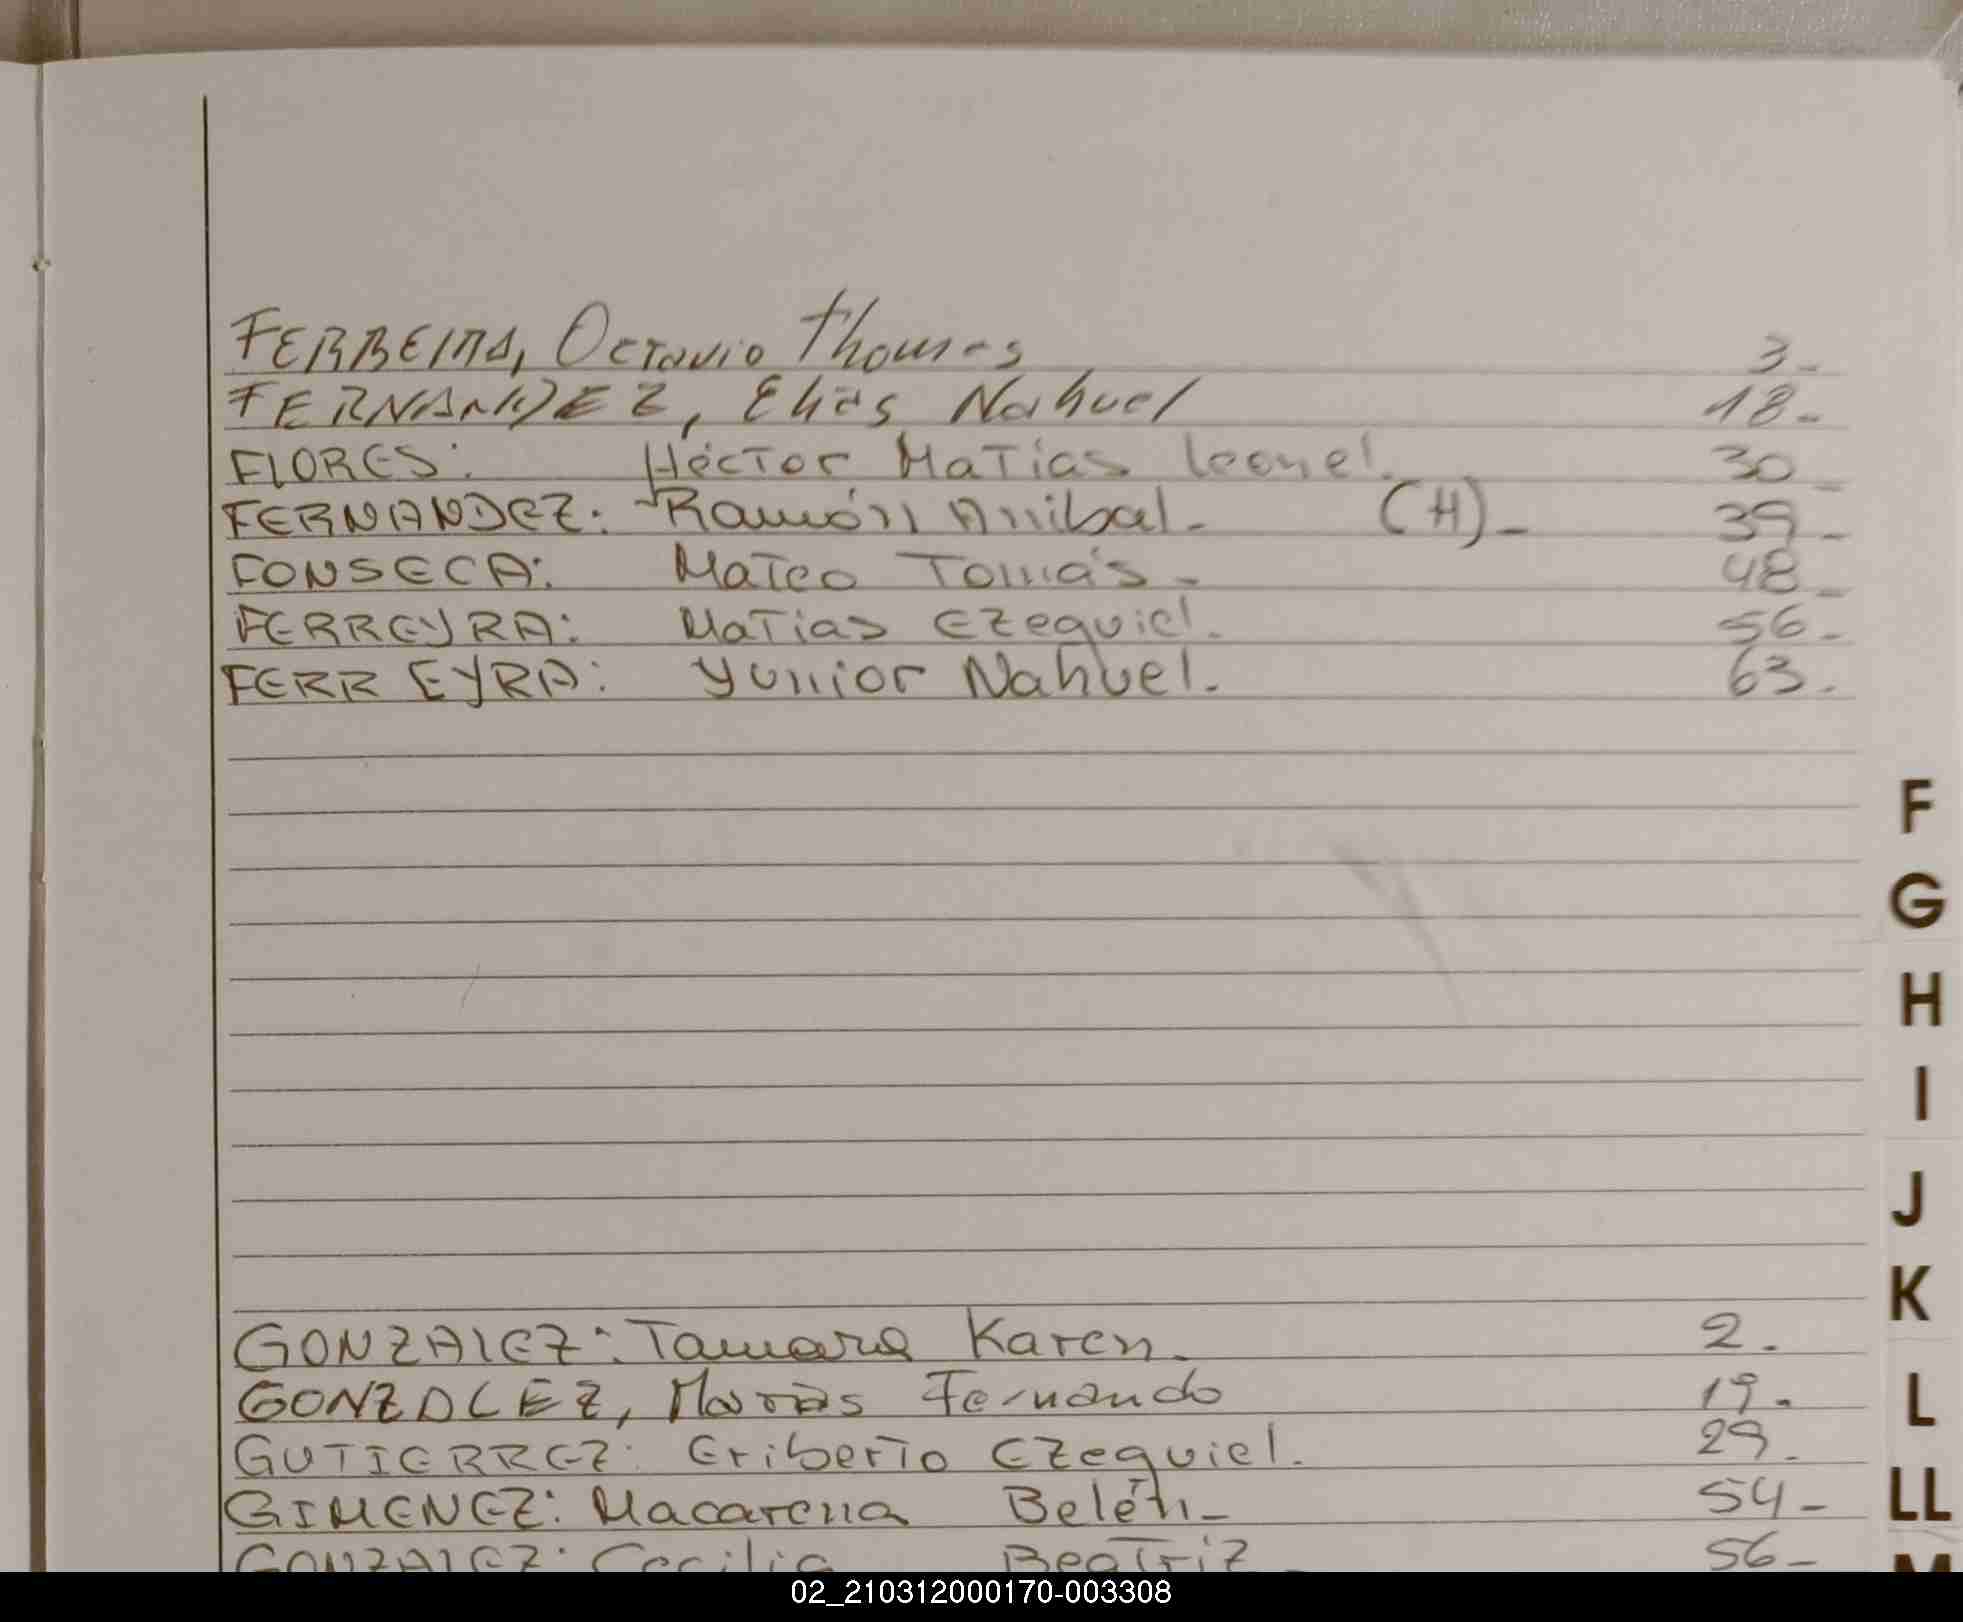 FERREIRA, Octavio Thomas 3-
FERNANDEZ, Elías Nahuel 18-
FLORES: Héctor Matías Leonel. 30-
FERNANDEZ: Ramón Anibal- (H)- 39-
FONSECA: Mateo Tomás- 48-
FERREYRA: Matias Ezequiel. 56-
FERREYRA: Yunior Nahuel. 63-
F
G
H
I
J
K
GONZALEZ: Tamara Karen- 2.
GONZALEZ, Matías Fernando 19-
L
GUTIERREZ: Eriberto Ezequiel. 29-
GIMENEZ: Macarena Belén- 54-
LL
GONZALEZ: Cecilia Beatriz- 56-
M
02_210312000170-003308